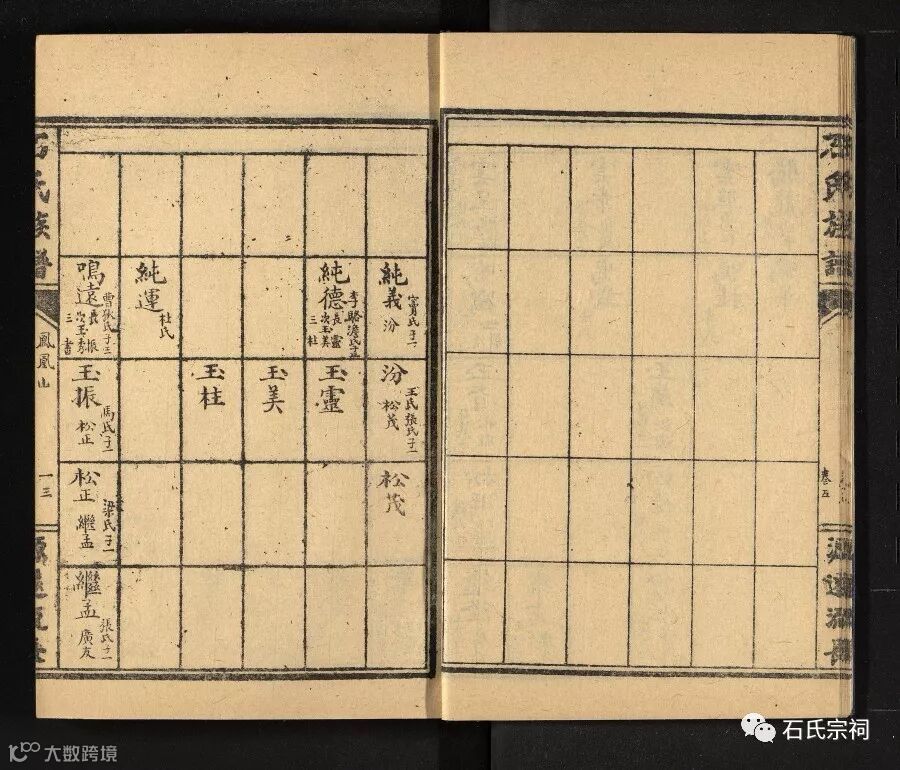 石氏族譜
卷五
源遠流長
純義
竇氏子一
汾
純德
李
駱
氏子三
長靈
次玉美
三柱
純運
杜氏
鳴遠
曹張氏子三
長振
次玉秀
三書
汾
王氏張氏子一
松茂
玉靈
玉美
玉柱
玉振
馬氏子一
松正
松茂
松正
梁氏子一
繼孟
繼孟
張氏子一
廣友
石氏族譜
鳳凰山
一三
源遠流長
石氏宗祠
100 大数跨境